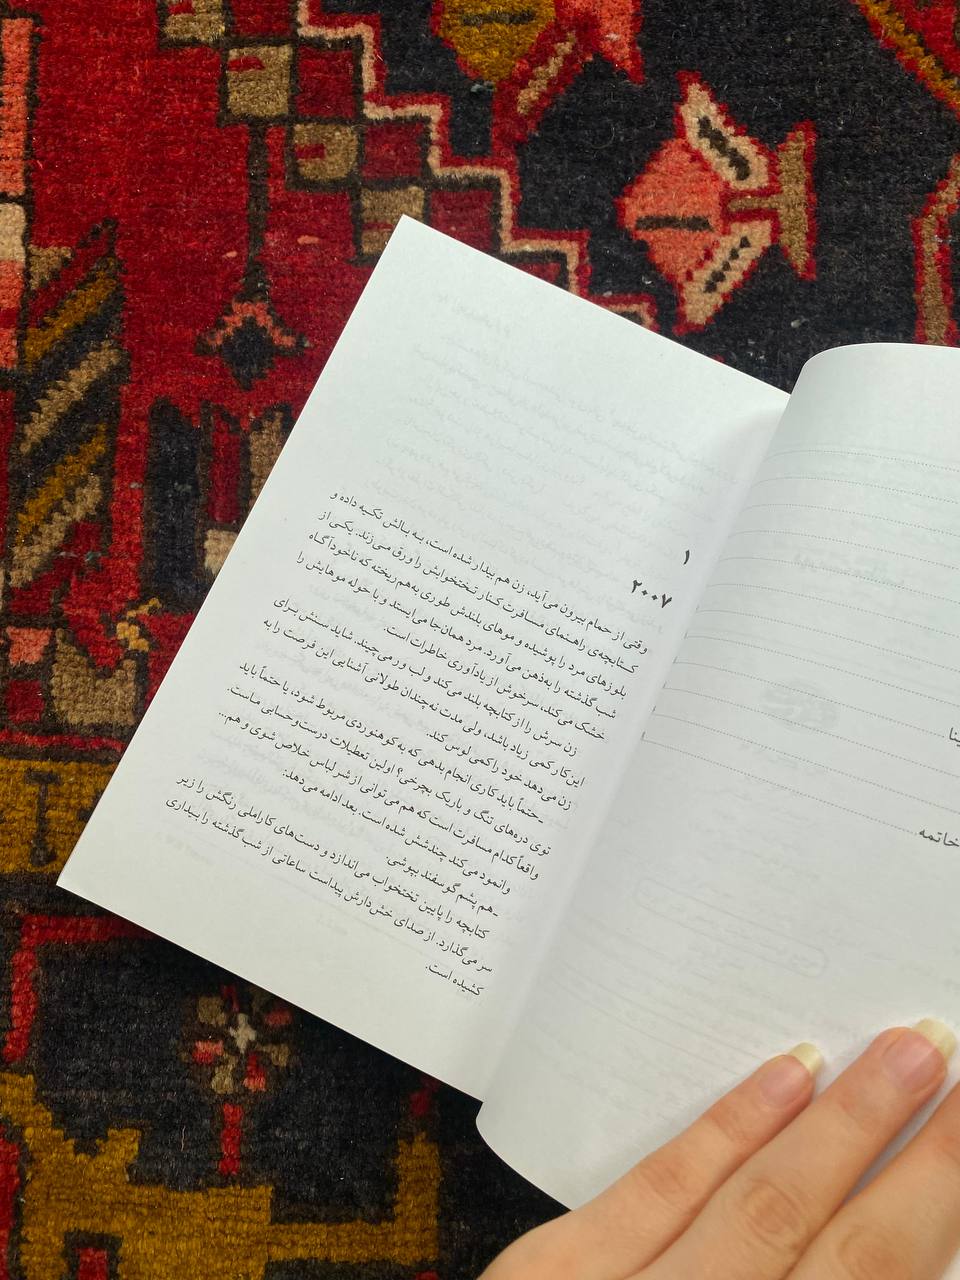 ۱
۲۰۰۷
وقتی از حمام بیرون می‌آید، زن هم بیدار شده است، به بالش تکیه داده و
کتابچه‌ی راهنمای مسافرت کنار تختخوابش را ورق می‌زند. یکی از
بلوزهای مرد را پوشیده و موهای بلندش طوری به‌هم ریخته که ناخودآگاه
شب گذشته را به‌ذهن می‌آورد. مرد همان‌جا می‌ایستد و با حوله موهایش را
خشک می‌کند، سرخوش از یادآوری خاطرات است.
زن سرش را از کتابچه بلند می‌کند و لب ورمی‌چیند. شاید سنش برای
این‌کار کمی زیاد باشد، ولی مدت نه‌چندان طولانی آشنایی این فرصت را به
زن می‌دهد خود را کمی لوس کند.
-حتماً باید کاری انجام بدهی که به کوهنوردی مربوط شود، یا حتماً باید
توی دره‌های تنگ و باریک بچرخی؟ اولین تعطیلات درست‌وحسابی ماست.
واقعاً کدام مسافرت است که هم می‌توانی از شر لباس خلاص شوی و هم...
وانمود می‌کند چندشش شده است. بعد ادامه می‌دهد:
-هم پشم گوسفند بپوشی.
کتابچه را پایین تختخواب می‌اندازد و دست‌های کاراملی رنگش را زیر
سر می‌گذارد. از صدای خش‌دارش پیداست ساعاتی از شب گذشته را بیداری
کشیده است.
خاتمه